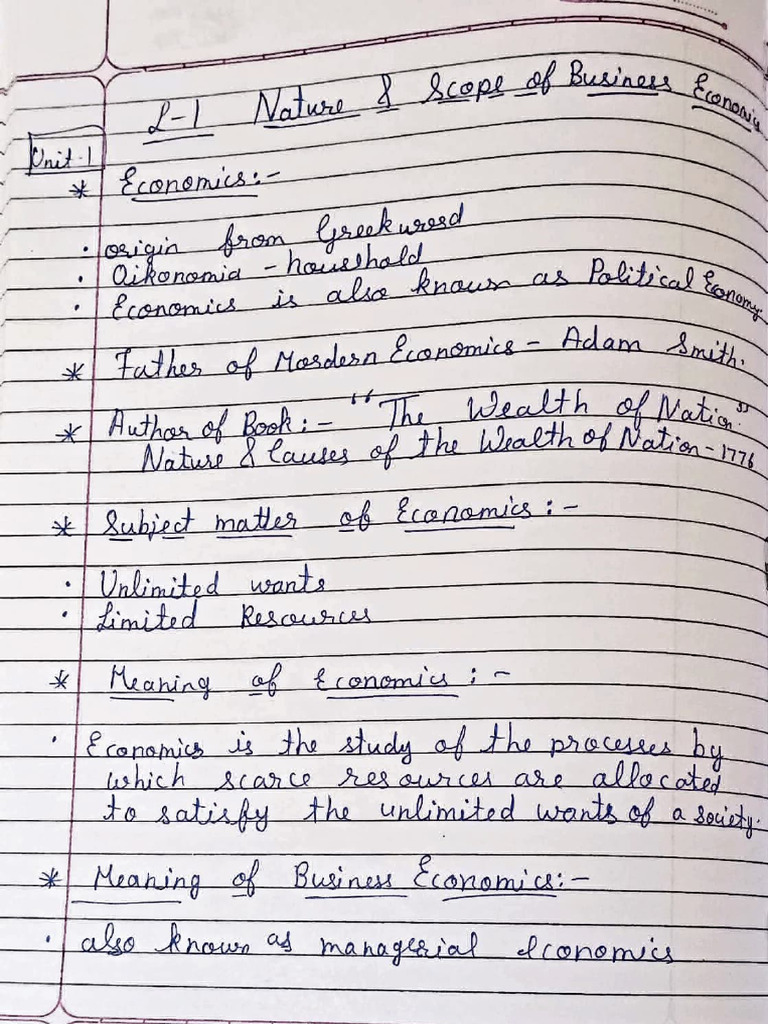 L-1 Nature & Scope of Business Economics
Unit-1
* Economics:-
· origin from Greek word
· Oikonomia - household
· Economics is also known as Political Economy.
* Father of Mordern Economics - Adam Smith.
* Author of Book:- "The Wealth of Nation"
Nature & Causes of the Wealth of Nation - 1776
* Subject matter of Economics:-
· Unlimited wants
· Limited Resources
* Meaning of Economics:-
· Economics is the study of the processes by
which scarce resources are allocated
to satisfy the unlimited wants of a society.
* Meaning of Business Economics:-
· also known as managerial economics